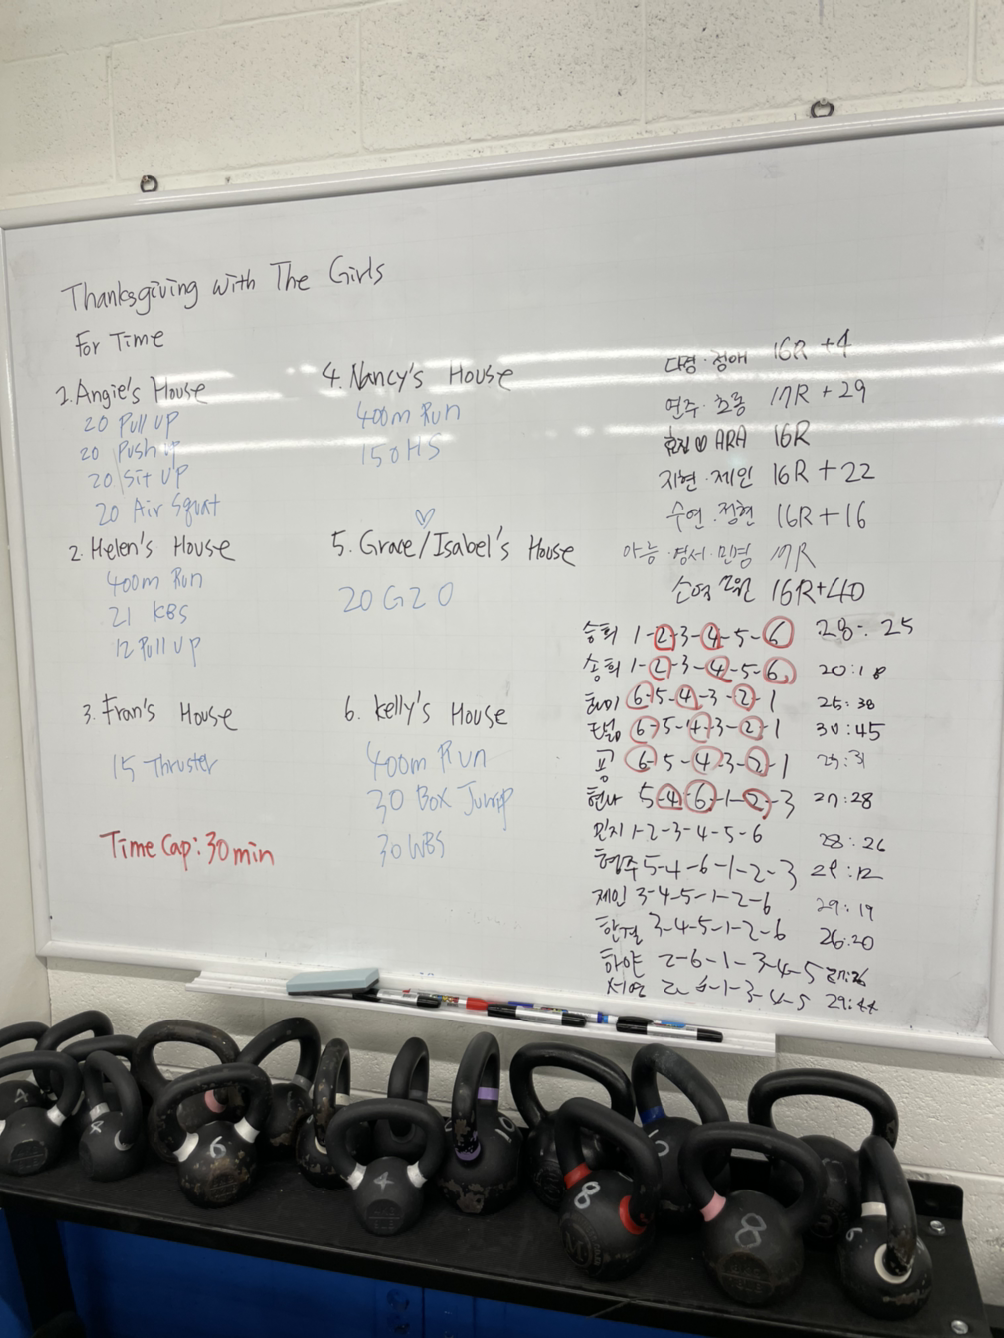 Thanksgiving with The Girls
For Time
Angie's House
20 Pull up
20 Push up
20 Sit up
20 Air Squat
2. Helen's House
400m Run
21 KBS
12 Pull up
3. Fran's House
15 Thruster
Time Cap: 30 min
4. Nancy's House
400m Run
15 OHS
5. Grace/Isabel's House
20 G2O
6. Kelly's House
400m Run
30 Box Jump
30 WBS
16R +4
연주·초롱 17R +29
ARA 16R
지현·제인 16R + 22
수연·정현 16R + 16
영서·민영 17R
16R+40
승희 1-2-3-4-5-6 28:25
송희 1-2-3-4-5-6 20:18
6-5-4-3-2-1 25:38
6-5-4-3-2-1 30:45
6-5-4-3-2-1
5-4-6-1-2-3 27:28
민지 1-2-3-4-5-6 28:26
형주 5-4-6-1-2-3
제인 3-4-5-1-2-6 29:19
한결 3-4-5-1-2-6 26:20
하얀 2-6-1-3-4-5
서연 2-6-1-3-4-5 29:44
4
4
6
4
10
8
8
6